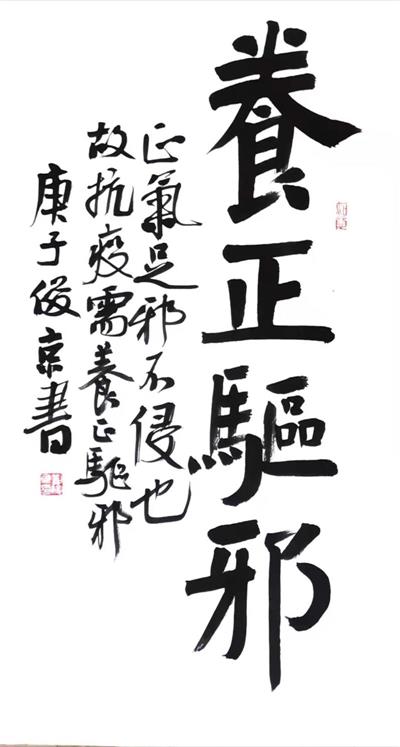 養正驅邪
正氣足邪不侵也
故抗疫需養正驅邪
庚子俊京書